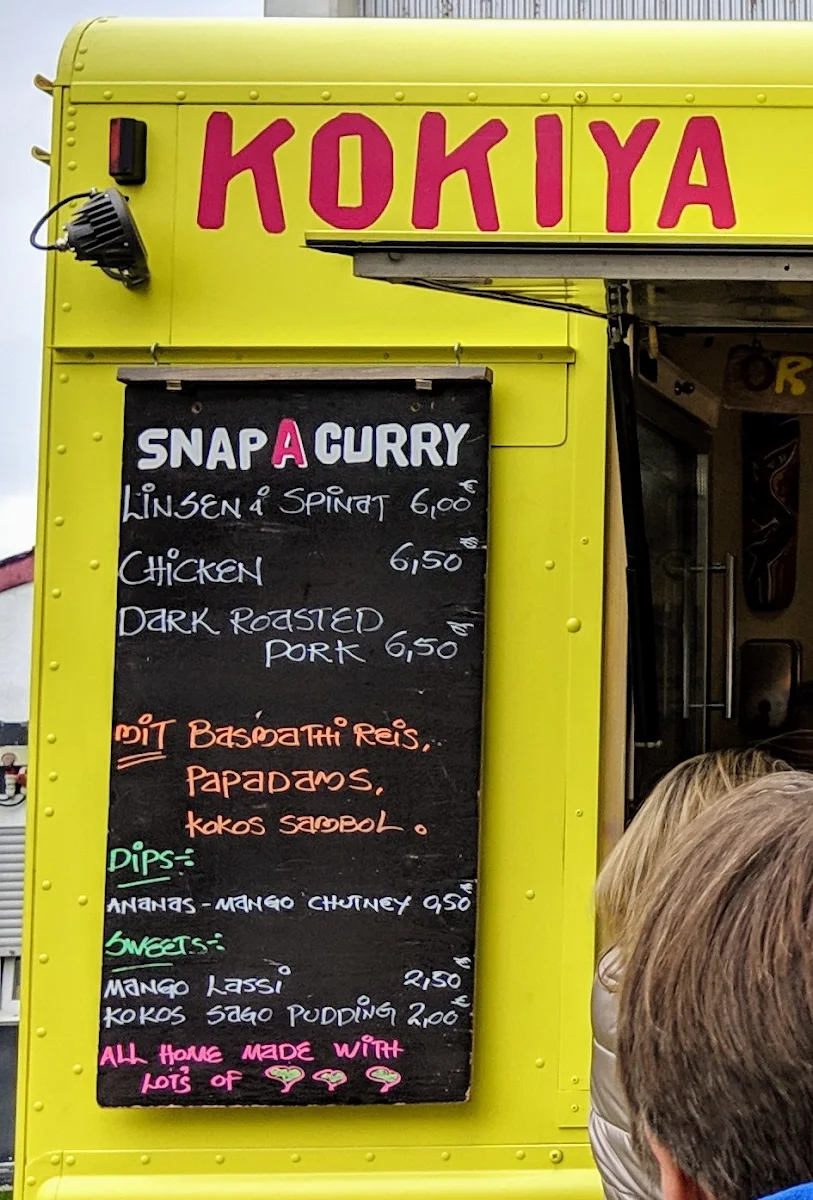 KOKIYA
OR
SNAP A CURRY
LINSEN & SPINAT 6,00€
CHICKEN 6,50€
DARK ROASTED
PORK 6,50€
MIT BASMATHI REIS,
PAPADAMS,
KOKOS SAMBOL.
DIPS:
ANANAS-MANGO CHUTNEY 0,50€
SWEETS:
MANGO LASSI 2,50€
KOKOS SAGO PUDDING 2,00€
ALL HOME MADE WITH
LOTS OF